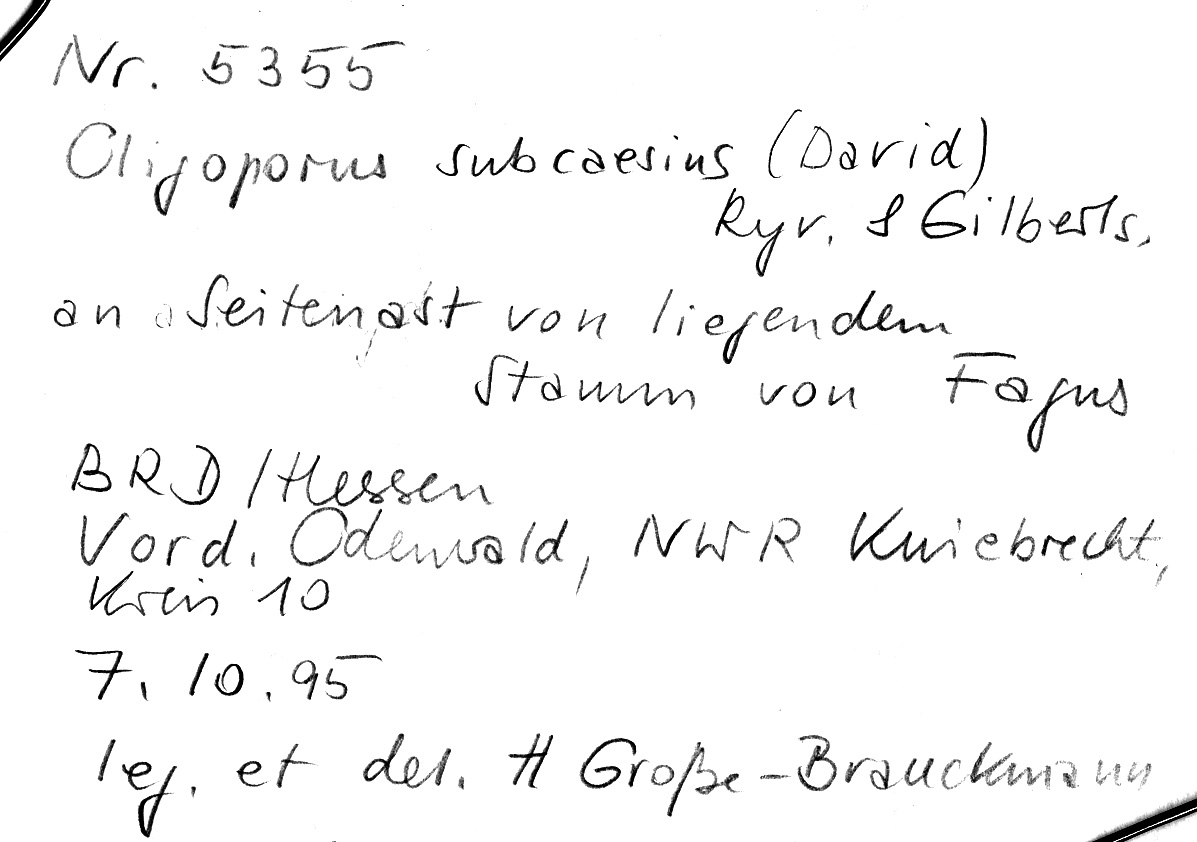 Nr. 5355
Oligoporus subcaesius (David)
Ryv. & Gilberts.
an Seitenast von liegendem
Stamm von Fagus
BRD/Hessen
Vord. Odenwald, NWR Kniebrecht,
Kreis 10
7. 10. 95
leg. et det. H Große-Brauckmann